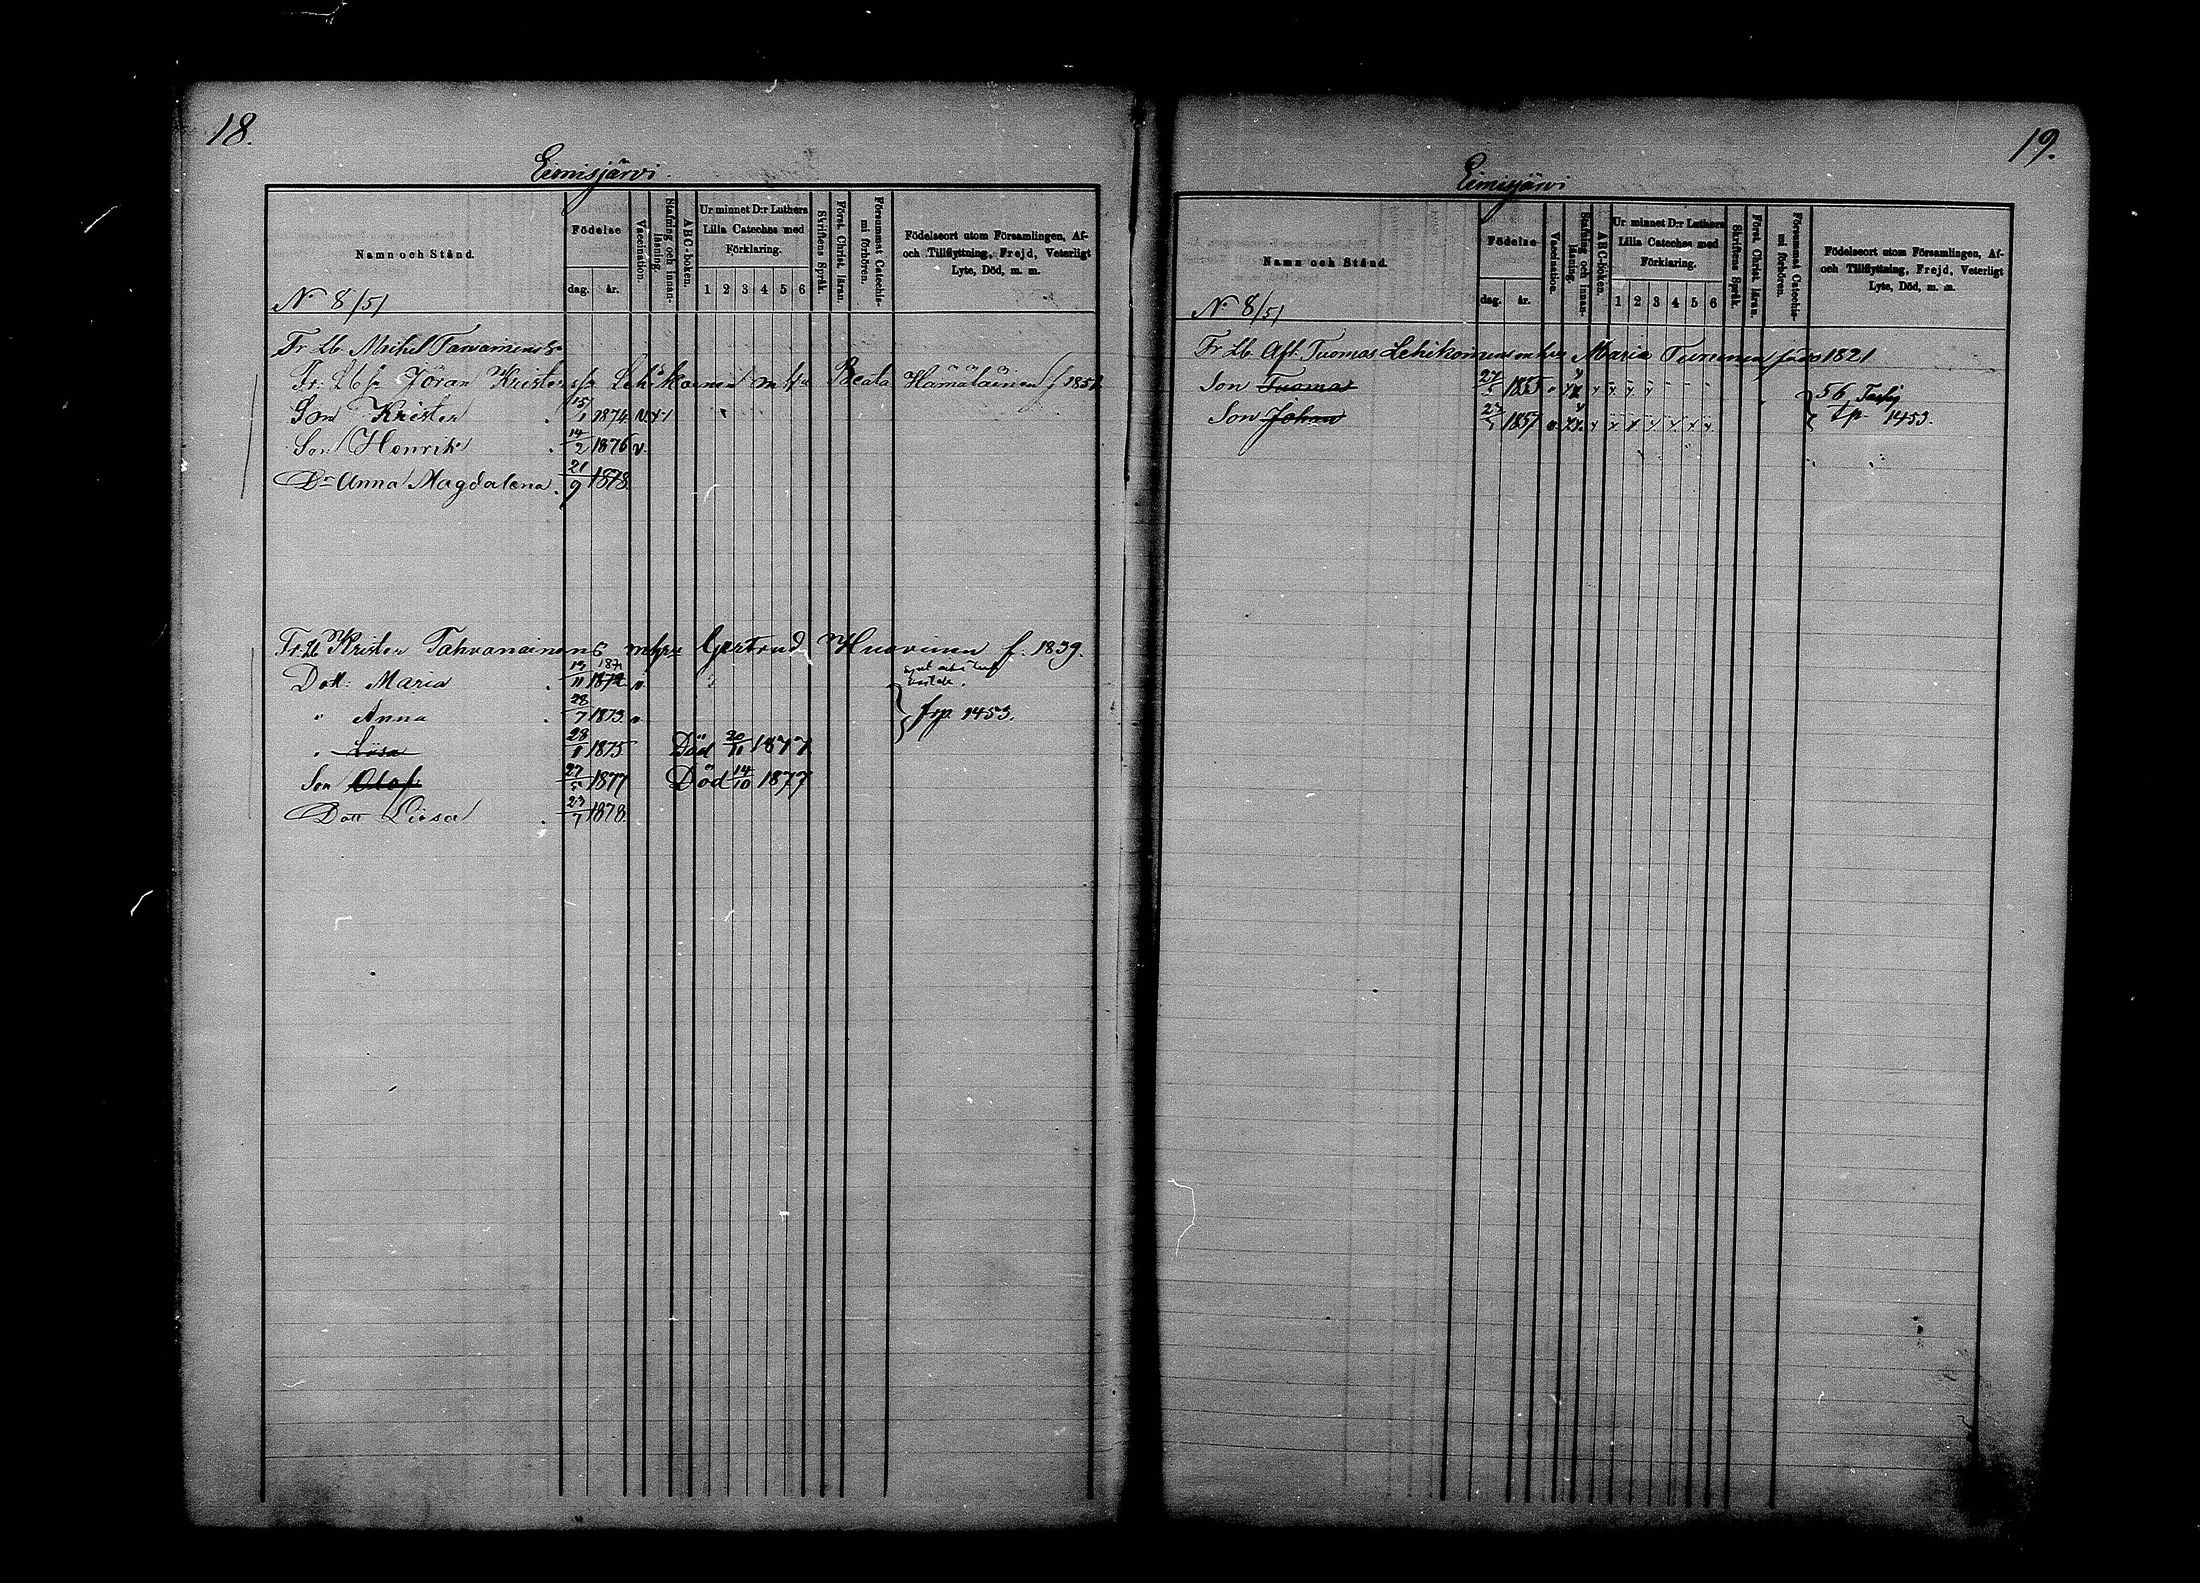 18.
Eimisjärvi.
Namn och Stånd.
Födelse
dag. år.
Vaccination.
Stafning och innan-läsning.
ABC-boken.
Ur minnet D:r Luthers Lilla Cateches med Förklaring.
1 2 3 4 5 6
Skriftens Språk.
Först. Christ. läran.
Försummat Catechismi förhören.
Födelseort utom Församlingen, Af- och Tillflyttning, Frejd, Veterligt Lyte, Död, m. m.
No 8/51
Fr. Lb. Michel
Fr. Lb Jöran Kristers/n Lehikoinen m h/u Beata Hämäläinen f 185
Son Krister 15/1 1874
Son Henrik 14/2 1876 v.
Dr Anna Magdalena. 21/9 1878.
Fr. Lb Krister Tahvanainens Gertrud Huovinen f. 1839.
Dott: Maria 11 1872 187 v.
" Anna 28/7 1873 v. frp. 1453.
" Lisa 28 1875 Död 20/11 1877
Son Olof 27/5 1877 Död 14/10 1877
Dott Liisa 23/7 1878.
19.
Eimisjärvi
Namn och Stånd.
Födelse
dag. år.
Vaccination.
Stafning och innan-läsning.
ABC-boken.
Ur minnet D:r Luthers Lilla Cateches med Förklaring.
1 2 3 4 5 6
Skriftens Språk.
Först. Christ. läran.
Försummat Catechis-mi förhören.
Födelseort utom Församlingen, Af- och Tillflyttning, Frejd, Veterligt Lyte, Död, m. m.
No 8/51
Fr Lb. Afl. Tuomas Lehikoinens enka Maria Turunen född 1821
Son Tuomas 27 1855 56
Son Johan 23 1857 fp. 1453.